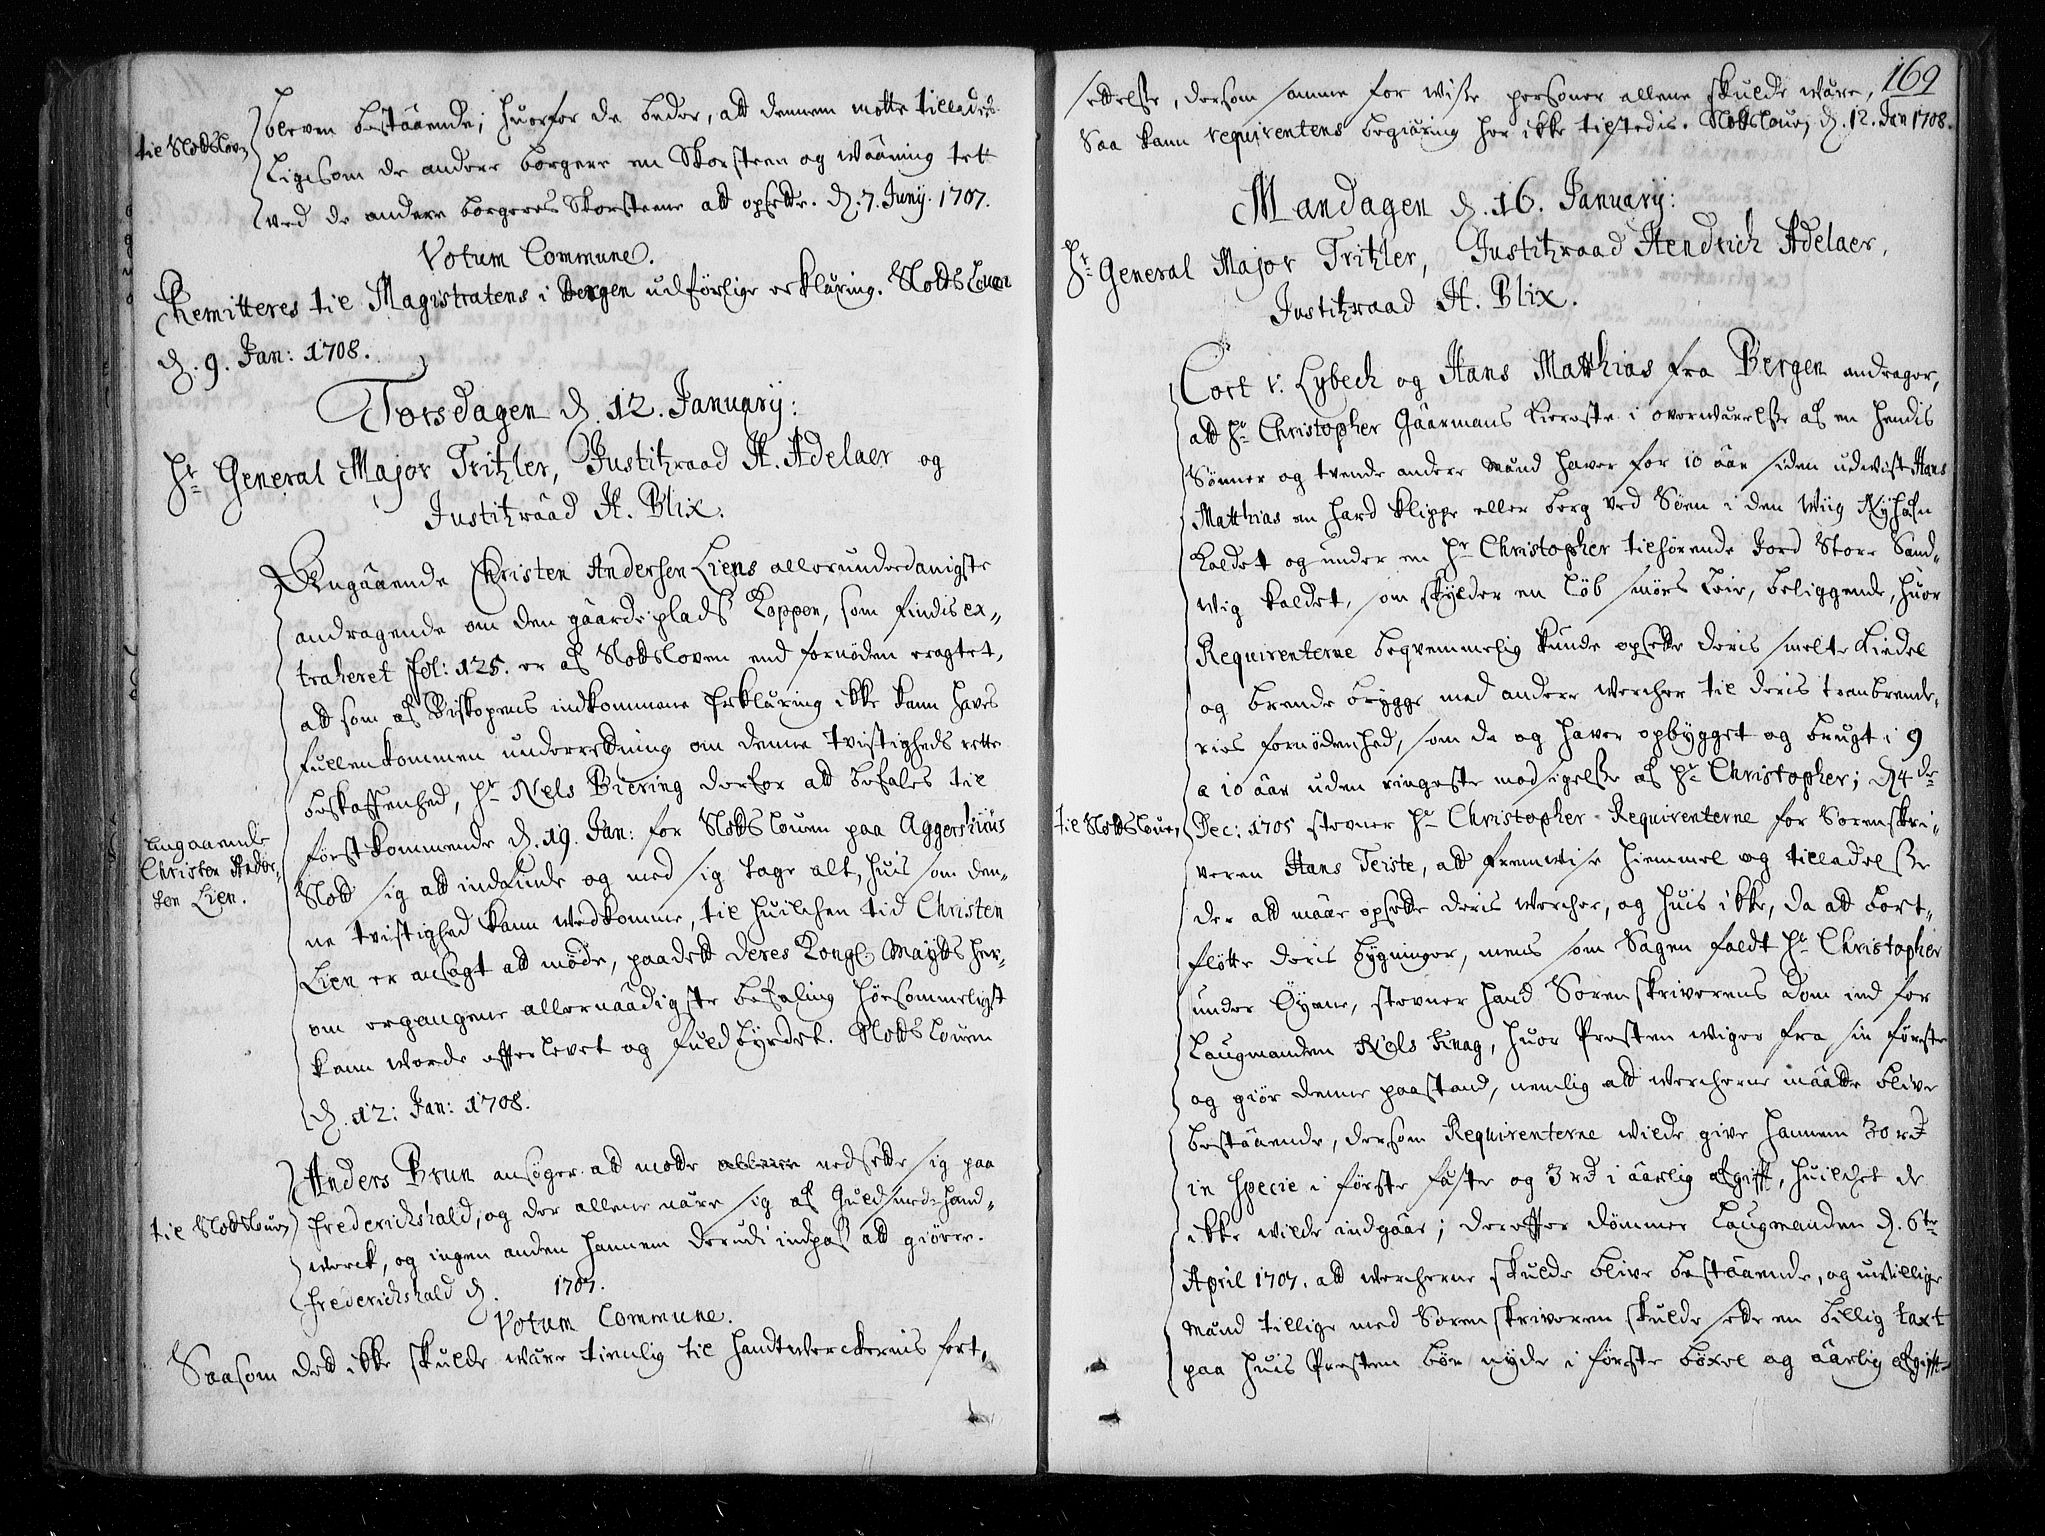 til Slotsloven
bleven bestaaende; huorfor de beder, att dennem motte tillades
ligesom de andere borgere en Skorsteen og waaning tett
ved de andere borgeres Skorsteene att opsette. D. 7. Junÿ. 1707.
Votum Commune.
Remitteres til Magistratens i Bergen udförlige erklæring. Slotslouen
D. 9. Jan: 1708.
Torsdagen D. 12. Januarÿ:
Hr. General Major Tritzler, Justitzraad H. Adelaer og
Justitzraad H. Blix.
angaaende
Christen Ander-
sen Lien.
Angaaende Christen Andersen Liens allerunderdanigste
andragende om den gaardeplads Koppen, som findis ex-
traheret fol: 125. er af Slotsloven end fornöden eragtet,
att som af Biskopens indkommene Erklæring ikke kann haves
fullenkommen underretning om denne tvistigheds rette
beskaffenhed, Hr. Nels Biering derfor att befales til
förstkommende D. 19. Jan: for Slotslouen paa Aggershuus
Slott sig att indfinde og med sig tage alt, huis som den-
ne tvistighed kann wedkomme, til huilchen tid Christen
Lien er ansagt att möde, paadett Deres Kongl. Mayts her-
om ergangene allernaadigste befaling hörsommeligst
kann worde efterlevet og fuldbyrdet. Slotslouen
D. 12: Jan: 1708.
til Slotslouen
Anders Brun ansöger att motte nedsette sig paa
Frederichshald, og der allene nære sig af Guldsmed-hand-
werck, og ingen anden hannem derudi indpas att giörre.
Frederichshald D. 1707.
Votum Commune.
Saasom det ikke skulde wære tienlig til handtwerckernis fort-
169
settelsse, dersom samme for wisse personer allene skulde wære,
Saa kann requirentens begiæring her ikke tilstedis. Slotslouen D. 12. Jan 1708.
Mandagen D. 16. Januarÿ:
Hr. General Major Tritzler, Justitzraad Hendrich Adelaer,
Justitzraad H. Blix.
til Slotslouen
Cort v. Lybech og Hans Matthias fra Bergen andrager,
att Hr. Christopher Gaarmans Kieroste i overwærelsse af en hendis
Sönner og tvende andere mænd haver for 10 aar siden udwist Hans
Matthias en hard klippe eller berg ved Söen i den Wiig Nÿhafn
kaldet og under en Hr. Christopher tilhörende Jord Store Sand-
wig kaldet, som skÿlder en löb smörs leie, beliggende, huor
Requirenterne beqvemmelig kunde opsette deris smelte kiedel
og brende brÿgge med andere wercher til deris tranbrende-
ries fornödenhed, som de og haver opbÿgget og brugt i 9
a 10 aar uden ringeste modsigelsse af Hr. Christopher; D 4de
Dec: 1705 stevner Hr. Christopher Requirenterne for Sorenskri-
veren Hans Teiste, att fremwise hiemmel og tilladelsse
der att maae opsette deris wercher, og huis ikke, da att bort-
flötte deris bÿgninger, mens som Sagen faldt Hr. Christopher
under Öÿene, stevner hand Sorenskriverens Dom ind for
Laugmanden Nels Knag, huor Presten wiger fra sin förste
og giör denne paastand, nemlig att wercherne maatte blive
bestaaende, dersom Requirenterne wilde give hannem 30 rd
in specie i förste fæste og 3 rd i aarlig afgift, huilchet de
ikke wilde indgaae; derefter dömmer Laugmanden D. 6te
April 1707. att wercherne skulde blive bestaaende, og uvillige
mænd tillige med Sorenskriveren skulde sette en billig taxt
paa huis Presten bör nÿde i förste böxel og aarlig afgift